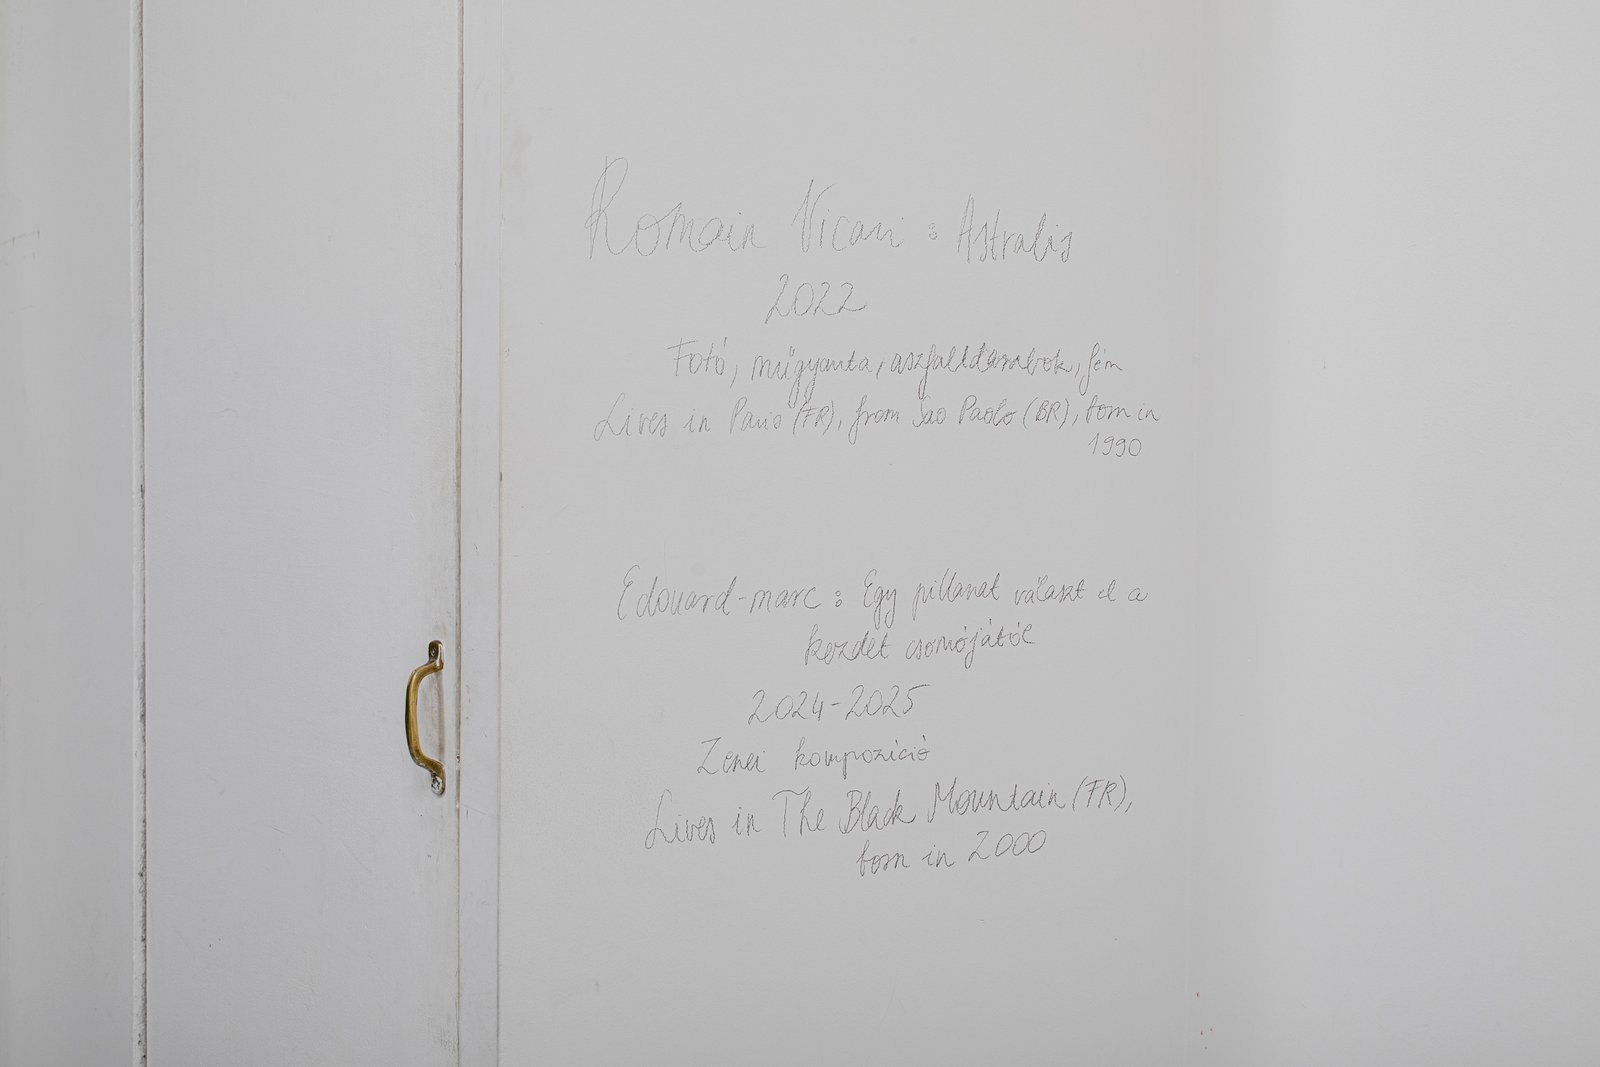 Romain Vicari : Astralis
2022
Fotó, műgyanta, aszfaltdarabok, fém
Lives in Paris (FR), from Sao Paolo (BR), born in
1990
Edouard-marc : Egy pillanat választ el a
kezdet csomójától
2024-2025
Zenei kompozíció
Lives in The Black Mountain (FR),
born in 2000